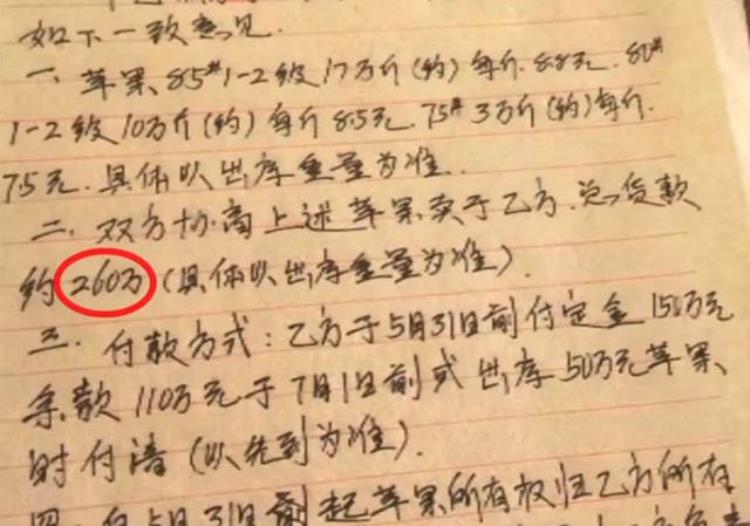 如下一致意见.
一、苹果、85#1-2级17万斤(约)每斤8.8元.80#
1-2级10万斤(约)每斤8.5元.75#3万斤(约)每斤.
7.5元.具体以出库重量为准.
二.双方协商上述苹果卖于乙方.总货款
约260万(具体以出库重量为准).
三.付款方式:乙方于5月31日前付定金150万元
余款110万元于7月1日前或出库50万元苹果、
时付清(以先到为准).
四.自5月31日前起苹果所有权归乙方所有